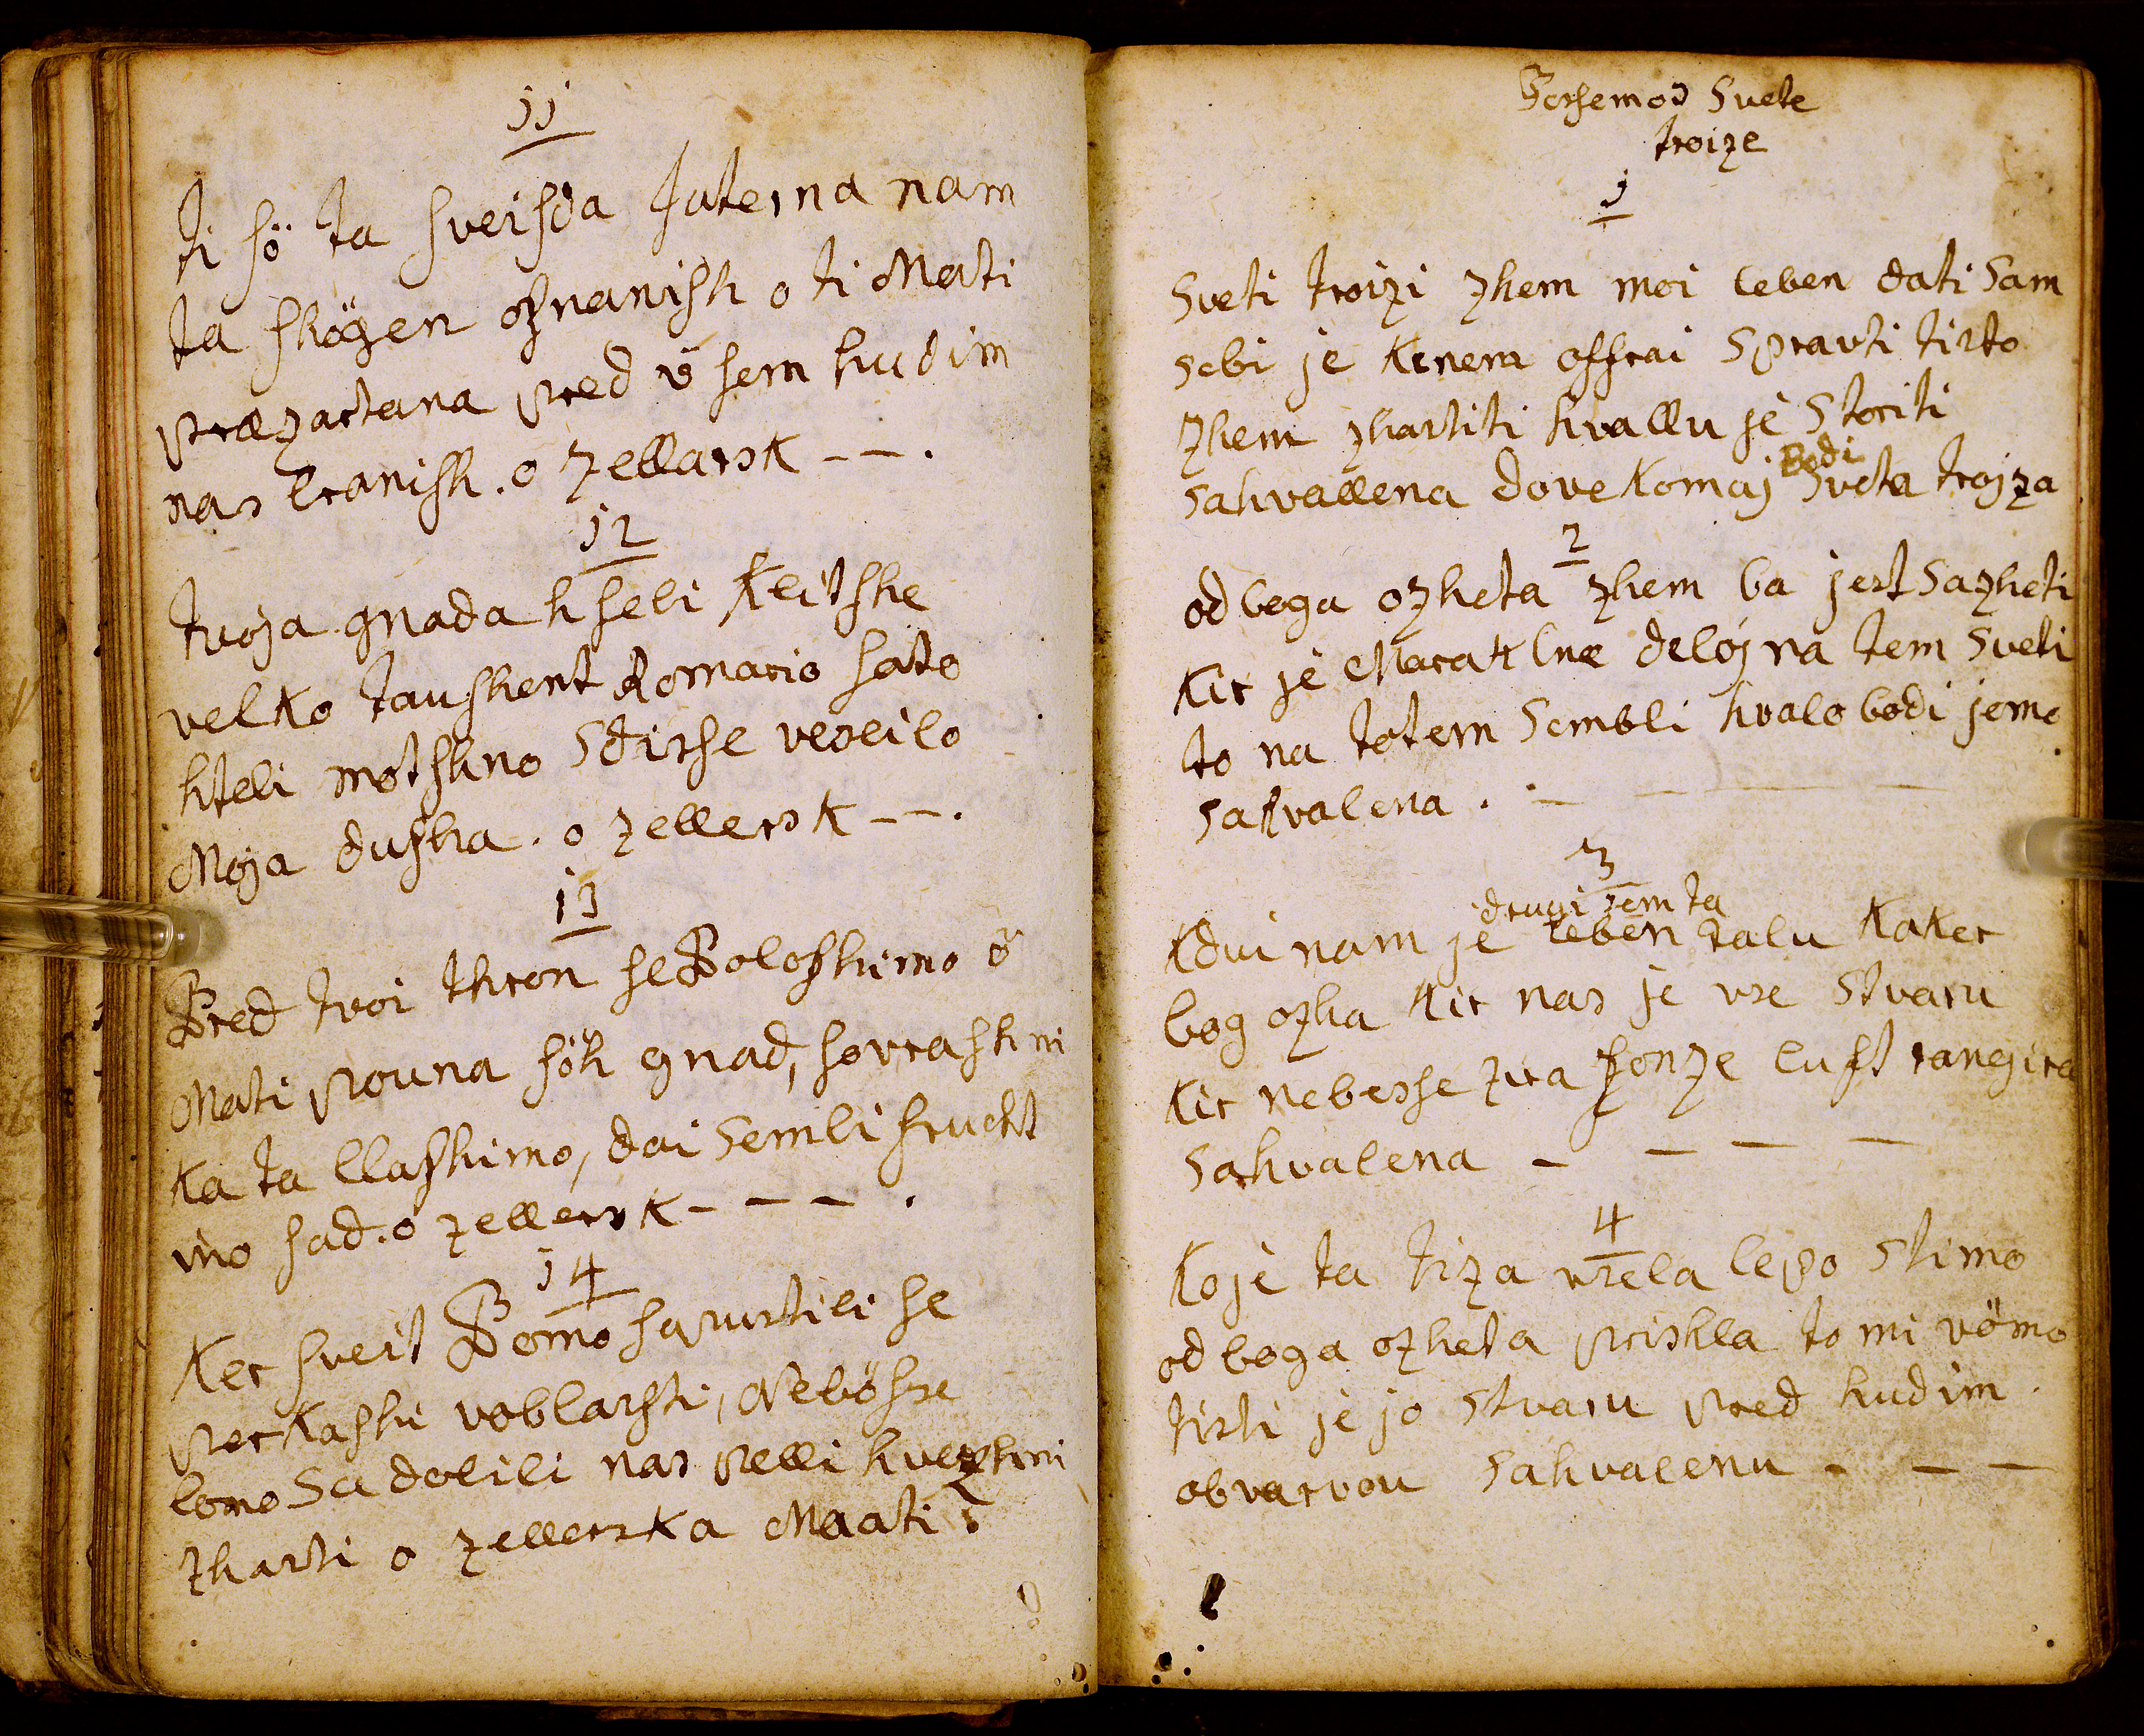 11
ti sö ta sveisda Juterna nam
ta skögen osnanish o ti Mati
præzartana pred v sem hudim
nas branish. o zellarsk - - .
12
tvoja gnada h sebi kleitshe
velko taushent Romario sato
hteli motshno sdirse veseilo
Moja dusha. o zellersk - - .
13
Pred tvoi thron se Poloshimo ö
Mati pouna söh gnad, sovrashni
ka ta llashimo, dai semli frucht
ino sad. o zellersk - - - .
14
Ker sveit Bomo sapustili se
perkashi voblasti, Nebösse
bomo sadobili nas pelli kvezhni
zhasti o zellerska Maati
Persemod Svete
troize
1
Sveti troizi zhem moi leben dati sam
sebi je kenem offrai spravti tisto
zhem zhastiti hvallu je storiti
Bodi
sahvallena dovekomaj Sveta trojza
2
od boga ozheta zhem ba jest sazheti
kir je Marathne deloj na tem sveti
to na totem sembli hvalo bodi jemo
sahvalena . - - - -
3
drugi sem ta
kdui nam je leben dalu kaker
bog ozha kir nas je vse stvaru
kir nebesse zira sonze luft rangira
sahvalena - - - -
4
Koje ta tiza vsela lepo stimo
od boga ozheta prishla to mi vömo
tisti je jo stvaru pred hudim
obvarvou sahvalenu - - -